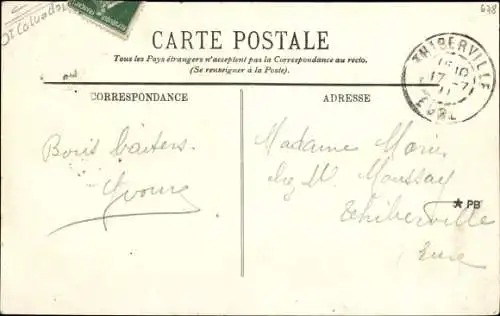 638
Calvados
CARTE POSTALE
Tous les Pays étrangers n'acceptent pas la Correspondance au recto.
(Se renseigner à la Poste).
THIBERVILLE
17 -7
11
EURE
CORRESPONDANCE
ADRESSE
Bons baisers.
Yvonne
Madame Marie
chez M. Moussay
Thiberville
Eure
* PB